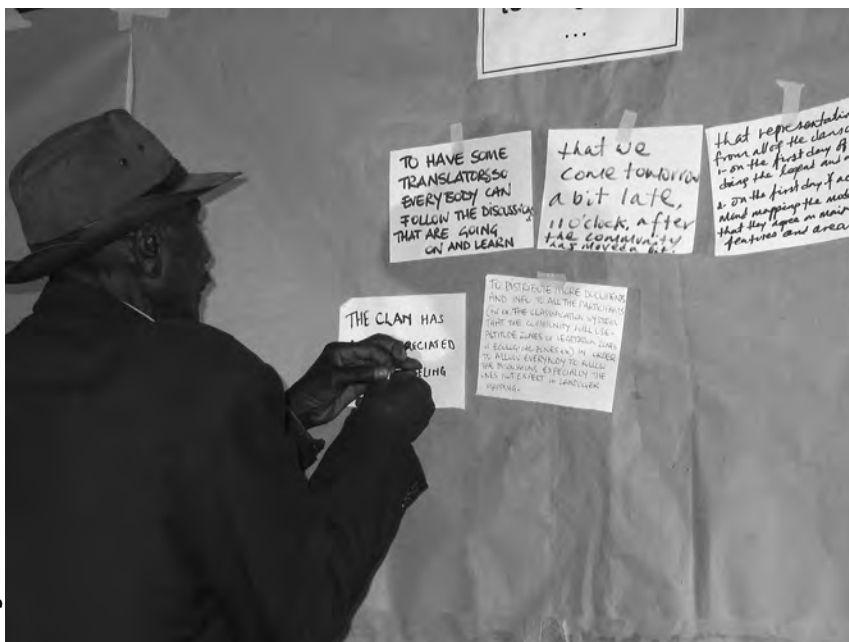 ...
TO HAVE SOME
TRANSLATORS, SO
EVERY BODY CAN
FOLLOW THE DISCUSSIONS
THAT ARE GOING
ON AND LEARN
that we
come tomorrow
a bit late,
11 o'clock, after
the community
has moved a bit.
that representatives
from all of the clans
1- on the first day of
doing the legend and
2- on the first day of
mind mapping the
that they agree on main
features and area
THE CLAN HAS
TO DISTRIBUTE MORE DOCUMENTS
AND INFO TO ALL THE PARTICIPANTS
THE CLASSIFICATION SYSTEM
THAT THE COMMUNITY WILL USE-
ALTITUDE ZONES OR VEGETATION ZONES
OR ECOLOGICAL ZONES IN ORDER
TO ALLOW EVERYBODY TO FOLLOW
THE DISCUSSIONS ESPECIALLY THE
ONES NOT EXPERT IN LANDCOVER
MAPPING.